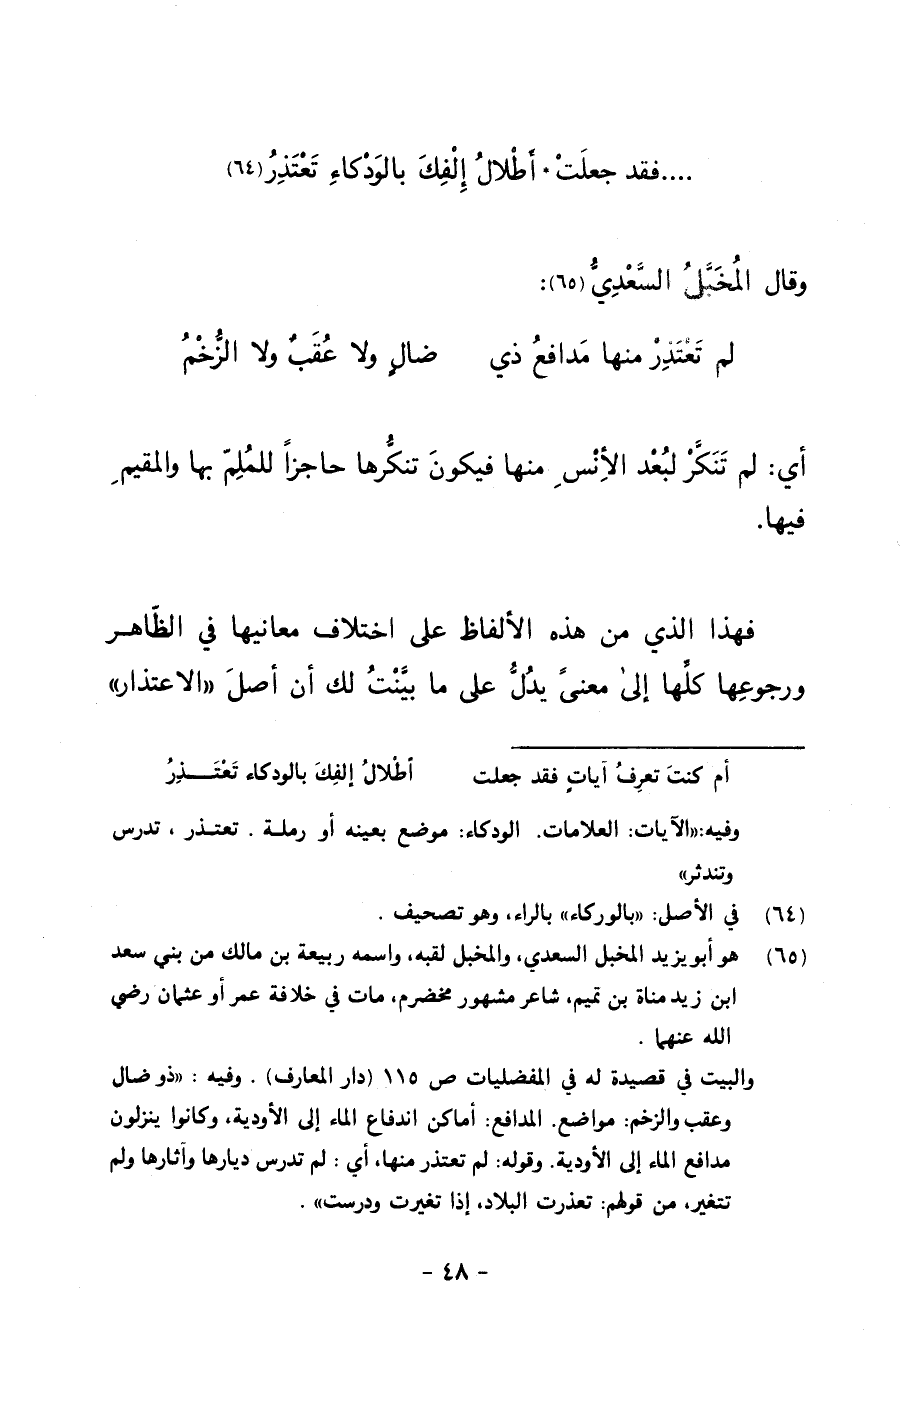 ....فقد جعلَتْ · أَطْلالُ إِلْفِكَ بالوَدْكاءِ تَعْتَذِرُ(٦٤)
وقال المُخَبَّلُ السَّعْدِيُّ(٦٥):
لم تَعْتَذِرْ منها مَدافعُ ذي ضالٍ ولا عُقَبٌ ولا الزُّخْمُ
أي: لم تَنَكَّرْ لبُعْد الأِنْسِ منها فيكونَ تنكُّرها حاجزاً للمُلِمّ بها والمقيمِ
فيها.
فهذا الذي من هذه الألفاظ على اختلاف معانيها في الظّاهر
ورجوعِها كلِّها إلىٰ معنىً يدُلُّ على ما بيَّنْتُ لك أن أصلَ «الاعتذار»
أم كنتَ تعرِفُ آياتٍ فقد جعلت أطْلالُ إلفِكَ بالودكاء تَعْتَـــذِرُ
وفيه:«الآيات: العلامات. الودكاء: موضع بعينه أو رملة . تعتذر ، تدرس
وتندثر»
(٦٤) في الأصل: «بالوركاء» بالراء، وهو تصحيف .
(٦٥) هو أبو يزيد المخبل السعدي، والمخبل لقبه، واسمه ربيعة بن مالك من بني سعد
ابن زيد مناة بن تميم، شاعر مشهور مخضرم، مات في خلافة عمر أو عثمان رضي
الله عنهما .
والبيت في قصيدة له في المفضليات ص ١١٥ (دار المعارف) . وفيه : «ذو ضال
وعقب والزخم: مواضع. المدافع: أماكن اندفاع الماء إلى الأودية، وكانوا ينزلون
مدافع الماء إلى الأودية. وقوله: لم تعتذر منها، أي : لم تدرس ديارها وآثارها ولم
تتغير، من قولهم: تعذرت البلاد، إذا تغيرت ودرست» .
- ٤٨ -